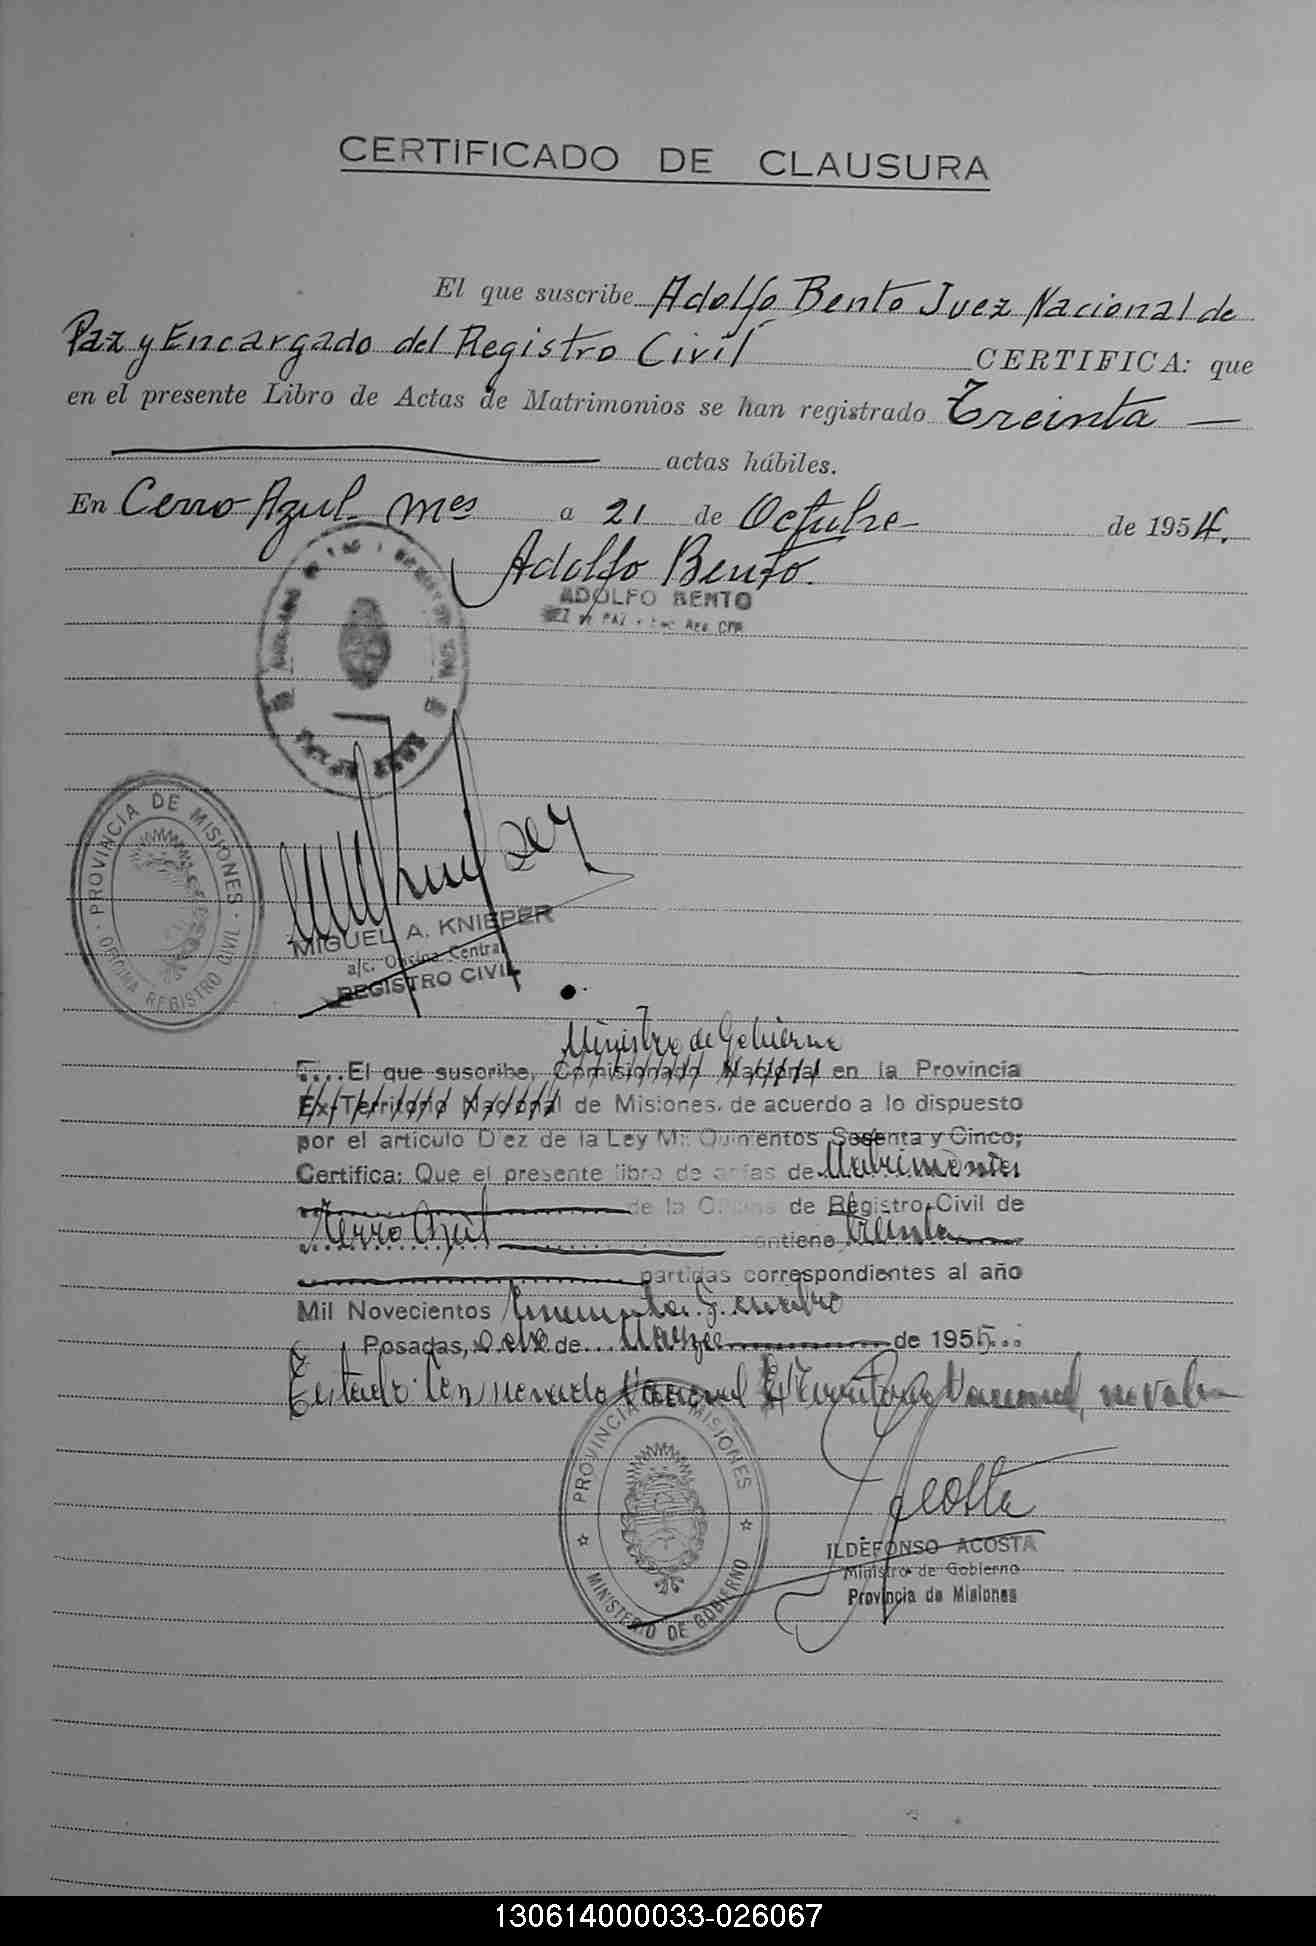 CERTIFICADO DE CLAUSURA
El que suscribe Adolfo Bento Juez Nacional de
Paz y Encargado del Registro Civil CERTIFICA: que
en el presente Libro de Actas de Matrimonios se han registrado Treinta —
actas hábiles.
En Cerro Azul Mnes a 21 de Octubre de 1954.
Adolfo Bento.
ADOLFO BENTO
PROVINCIA DE MISIONES
OFICINA REGISTRO CIVIL
MIGUEL A. KNIEPER
a/c. Oficina Central
REGISTRO CIVIL
Ministro de Gobierno
El que suscribe, Comisionado Nacional en la Provincia
Ex-Territorio Nacional de Misiones, de acuerdo a lo dispuesto
por el artículo Diez de la Ley Mil Quinientos Sesenta y Cinco;
Certifica: Que el presente libro de actas de Matrimonios
de la Oficina de Registro Civil de
Cerro Azul contiene treinta
partidas correspondientes al año
Mil Novecientos cincuenta y cuatro
Posadas, ocho de Marzo de 1955...
Testado: Comisionado Nacional Ex Territorio Nacional, no vale
PROVINCIA DE MISIONES
MINISTERIO DE GOBIERNO
Acosta
ILDEFONSO ACOSTA
Ministro de Gobierno
Provincia de Misiones
130614000033-026067